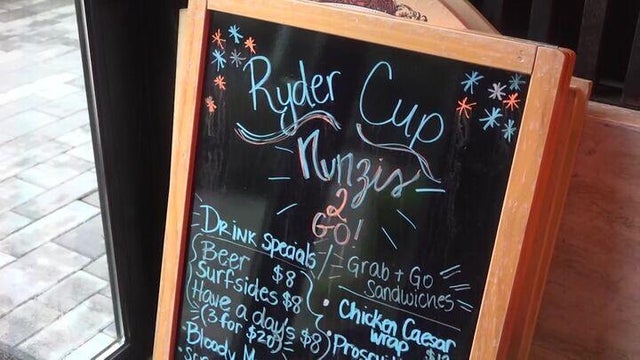 Ryder Cup
Nunzis
2
GO!
DRINK Specials
Beer $8
Surfsides $8
Have a days $8
(3 for $20)
• Bloody
Grab + Go
Sandwiches
• Chicken Caesar
wrap $12